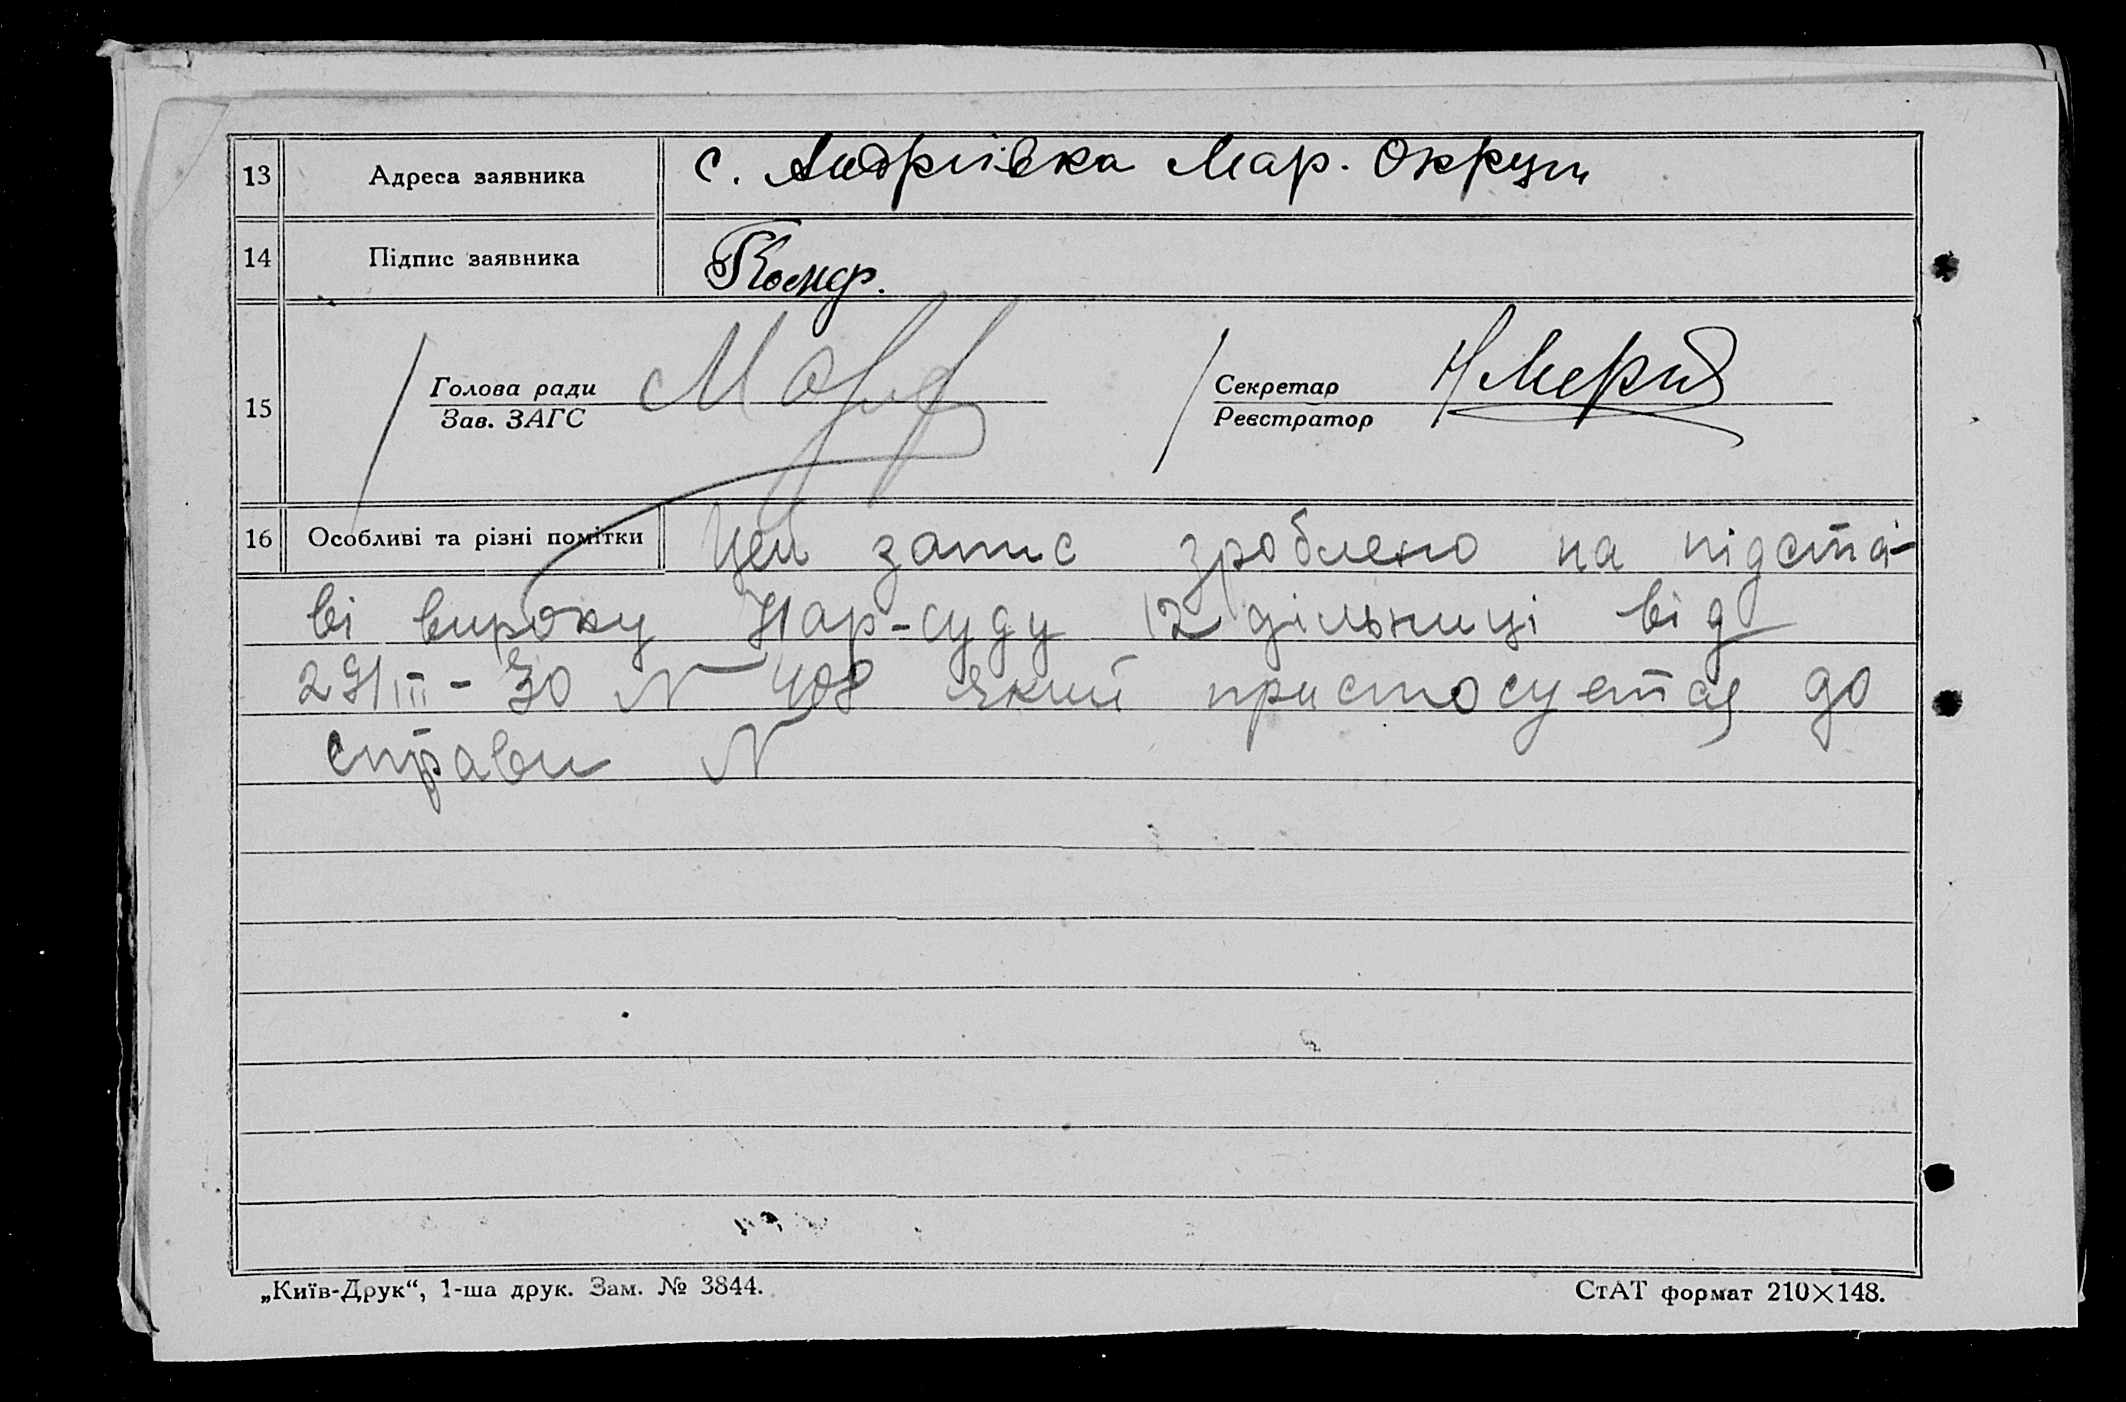 13 Адреса заявника с. Андріївка Мар. Округи
14 Підпис заявника
15 Голова ради Секретар
Зав. ЗАГС Реєстратор
16 Особливі та різні помітки Цей запис зроблено на підста-
ві вироку Нар-суду 12 дільниці від
29/III-30 N 408 який пристосуется до
справи N
„Київ-Друк“, 1-ша друк. Зам. № 3844. СтАТ формат 210×148.